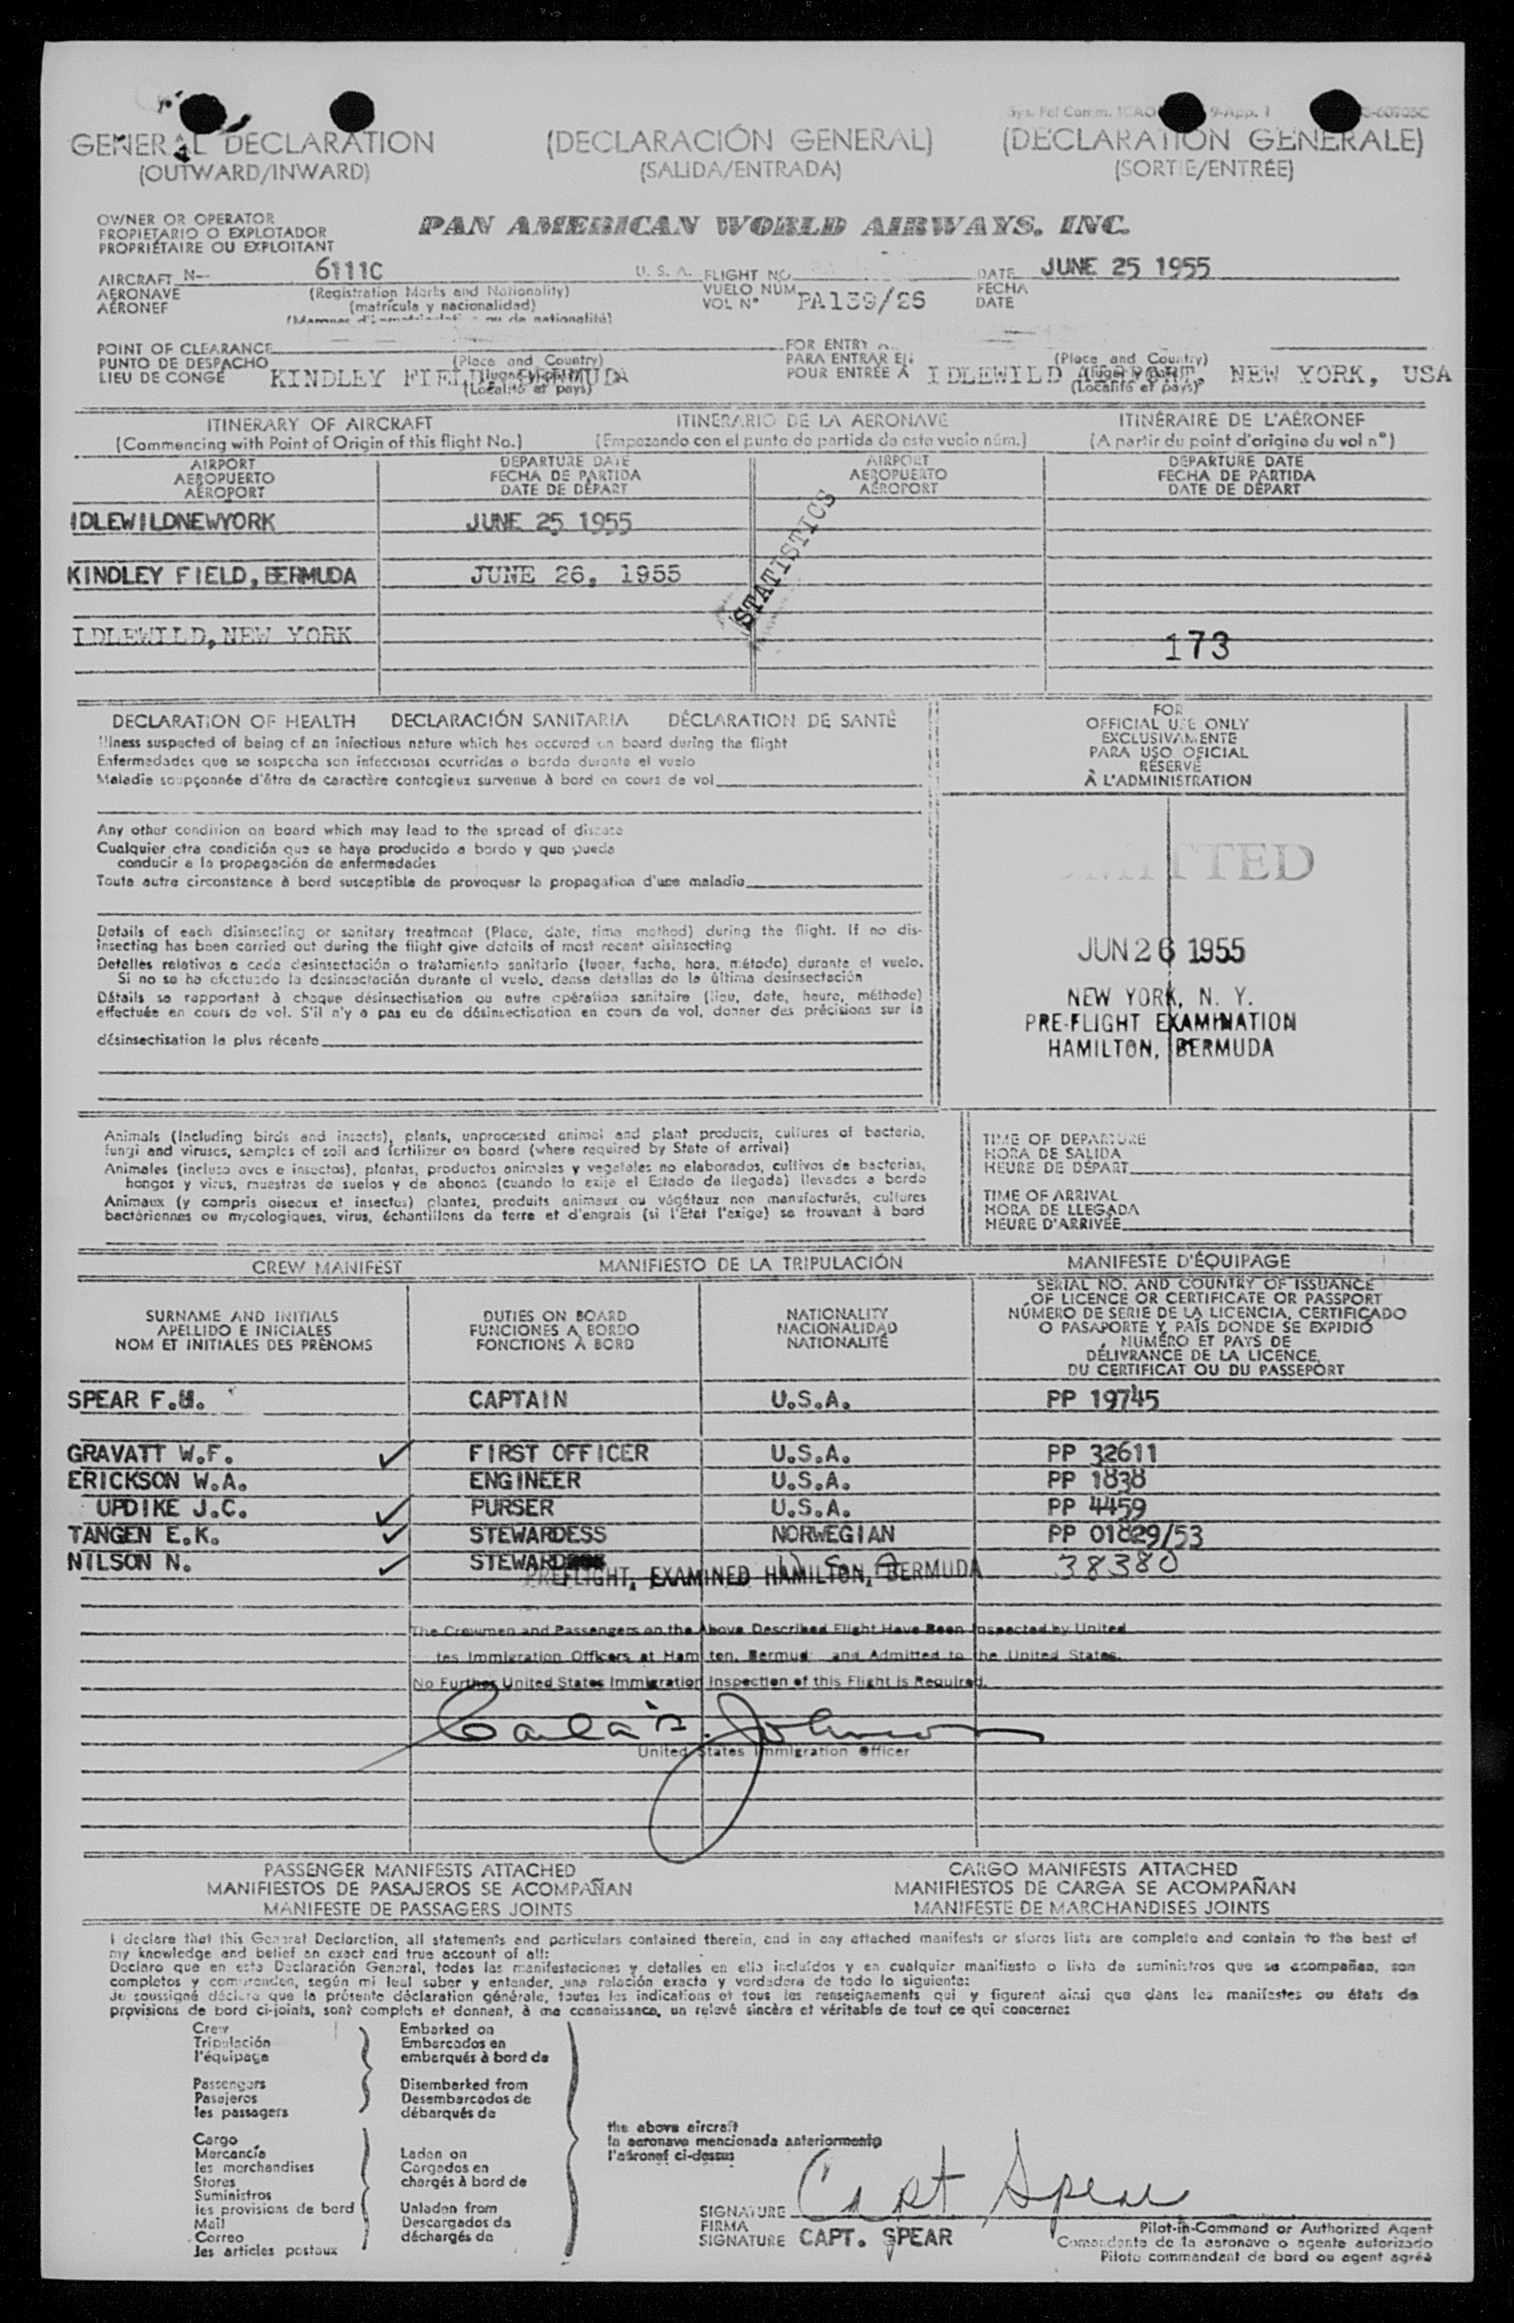 GENERAL DECLARATION (DECLARACIÓN GENERAL) (DECLARATION GENERALE)
(OUTWARD/INWARD) (SALIDA/ENTRADA) (SORTIE/ENTRÉE)
OWNER OR OPERATOR
PROPIETARIO O EXPLOTADOR
PROPRIÉTAIRE OU EXPLOITANT
PAN AMERICAN WORLD AIRWAYS, INC.
AIRCRAFT N- 6111C U. S. A. FLIGHT NO. DATE JUNE 25 1955
AERONAVE (Registration Marks and Nationality) VUELO NUM. FECHA
AÉRONEF (matrícula y nacionalidad) VOL Nº PA139/26 DATE
POINT OF CLEARANCE FOR ENTRY
PUNTO DE DESPACHO (Place and Country) PARA ENTRAR EN (Place and Country)
LIEU DE CONGÉ KINDLEY FIELD, BERMUDA POUR ENTRÉE À IDLEWILD AIRPORT, NEW YORK, USA
(Localité et pays) (Localité et pays)
ITINERARY OF AIRCRAFT ITINERARIO DE LA AERONAVE ITINÉRAIRE DE L'AÉRONEF
(Commencing with Point of Origin of this flight No.) (Empezando con el punto de partida de este vuelo núm.) (A partir du point d'origine du vol nº)
AIRPORT DEPARTURE DATE AIRPORT DEPARTURE DATE
AEROPUERTO FECHA DE PARTIDA AEROPUERTO FECHA DE PARTIDA
AÉROPORT DATE DE DÉPART AÉROPORT DATE DE DÉPART
IDLEWILDNEWYORK JUNE 25 1955
KINDLEY FIELD, BERMUDA JUNE 26, 1955
STATISTICS
IDLEWILD, NEW YORK
173
DECLARATION OF HEALTH DECLARACIÓN SANITARIA DÉCLARATION DE SANTÉ
Illness suspected of being of an infectious nature which has occured on board during the flight
Enfermedades que se sospecha son infecciosas ocurridas a bordo durante el vuelo
Maladie soupçonnée d'être de caractère contagieux survenue à bord en cours de vol
Any other condition on board which may lead to the spread of disease
Cualquier otra condición que se haya producido a bordo y que pueda
conducir a la propagación de enfermedades
Toute autre circonstance à bord susceptible de provoquer la propagation d'une maladie
Details of each disinsecting or sanitary treatment (Place, date, time method) during the flight. If no dis-
insecting has been carried out during the flight give details of most recent disinsecting
Detalles relativos a cada desinsectación o tratamiento sanitario (lugar, fecha, hora, método) durante el vuelo.
Si no se ha efectuado la desinsectación durante el vuelo, dense detalles de la última desinsectación
Détails se rapportant à chaque désinsectisation ou autre opération sanitaire (lieu, date, heure, méthode)
effectuée en cours de vol. S'il n'y a pas eu de désinsectisation en cours de vol, donner des précisions sur la
désinsectisation la plus récente
FOR
OFFICIAL USE ONLY
EXCLUSIVAMENTE
PARA USO OFICIAL
RÉSERVÉ
À L'ADMINISTRATION
JUN 26 1955
NEW YORK, N. Y.
PRE-FLIGHT EXAMINATION
HAMILTON, BERMUDA
Animals (Including birds and insects), plants, unprocessed animal and plant products, cultures of bacteria,
fungi and viruses, samples of soil and fertilizer on board (where required by State of arrival)
Animales (incluso aves e insectos), plantas, productos animales y vegetales no elaborados, cultivos de bacterias,
hongos y virus, muestras de suelos y de abonos (cuando lo exija el Estado de llegada) llevados a bordo
Animaux (y compris oiseaux et insectes) plantes, produits animaux ou végétaux non manufacturés, cultures
bactériennes ou mycologiques, virus, échantillons de terre et d'engrais (si l'État l'exige) se trouvant à bord
TIME OF DEPARTURE
HORA DE SALIDA
HEURE DE DÉPART
TIME OF ARRIVAL
HORA DE LLEGADA
HEURE D'ARRIVÉE
CREW MANIFEST MANIFIESTO DE LA TRIPULACIÓN MANIFESTE D'ÉQUIPAGE
SURNAME AND INITIALS
APELLIDO E INICIALES
NOM ET INITIALES DES PRÉNOMS
DUTIES ON BOARD
FUNCIONES A BORDO
FONCTIONS À BORD
NATIONALITY
NACIONALIDAD
NATIONALITÉ
SERIAL NO. AND COUNTRY OF ISSUANCE
OF LICENCE OR CERTIFICATE OR PASSPORT
NÚMERO DE SERIE DE LA LICENCIA, CERTIFICADO
O PASAPORTE Y PAÍS DONDE SE EXPIDIÓ
NUMÉRO ET PAYS DE
DÉLIVRANCE DE LA LICENCE,
DU CERTIFICAT OU DU PASSEPORT
SPEAR F.H. CAPTAIN U.S.A. PP 19745
GRAVATT W.F. ✓ FIRST OFFICER U.S.A. PP 32611
ERICKSON W.A. ENGINEER U.S.A. PP 1838
UPDIKE J.C. ✓ PURSER U.S.A. PP 4459
TANGEN E.K. ✓ STEWARDESS NORWEGIAN PP 01829/53
NILSON N. ✓ STEWARD U S A 38380
PREFLIGHT, EXAMINED HAMILTON, BERMUDA
The Crewmen and Passengers on the Above Described Flight Have Been Inspected by United
tes Immigration Officers at Ham ten, Bermud and Admitted to the United States.
No Further United States Immigration Inspection of this Flight is Required.
United States Immigration Officer
PASSENGER MANIFESTS ATTACHED CARGO MANIFESTS ATTACHED
MANIFIESTOS DE PASAJEROS SE ACOMPAÑAN MANIFIESTOS DE CARGA SE ACOMPAÑAN
MANIFESTE DE PASSAGERS JOINTS MANIFESTE DE MARCHANDISES JOINTS
I declare that this General Declarction, all statements and particulars contained therein, and in any attached manifests or stores lists are complete and contain to the best of
my knowledge and belief an exact and true account of all:
Declaro que en esta Declaración General, todas las manifestaciones y detalles en ella incluídos y en cualquier manifiesto o lista de suministros que se acompañan, son
completos y comprenden, según mi leal saber y entender, una relación exacta y verdadera de todo lo siguiente:
Je soussigné déclare que la présente déclaration générale, toutes les indications et tous les renseignements qui y figurent ainsi que dans les manifestes ou états de
provisions de bord ci-joints, sont complets et donnent, à ma connaissance, un relevé sincère et véritable de tout ce qui concerne:
Crew Embarked on
Tripulación Embarcados en
l'équipage embarqués à bord de
Passengers Disembarked from
Pasajeros Desembarcados de
les passagers débarqués de
the above aircraft
la aeronave mencionada anteriormente
l'aéronef ci-dessus
Cargo
Mercancía Laden on
les marchandises Cargados en
Stores chargés à bord de
Suministros
les provisions de bord Unladen from
Mail Descargados da
Correo déchargés de
les articles postaux
SIGNATURE Capt Spear
FIRMA
SIGNATURE CAPT. SPEAR
Pilot-in-Command or Authorized Agent
Comandante de la aeronave o agente autorizado
Pilote commandant de bord ou agent agréé